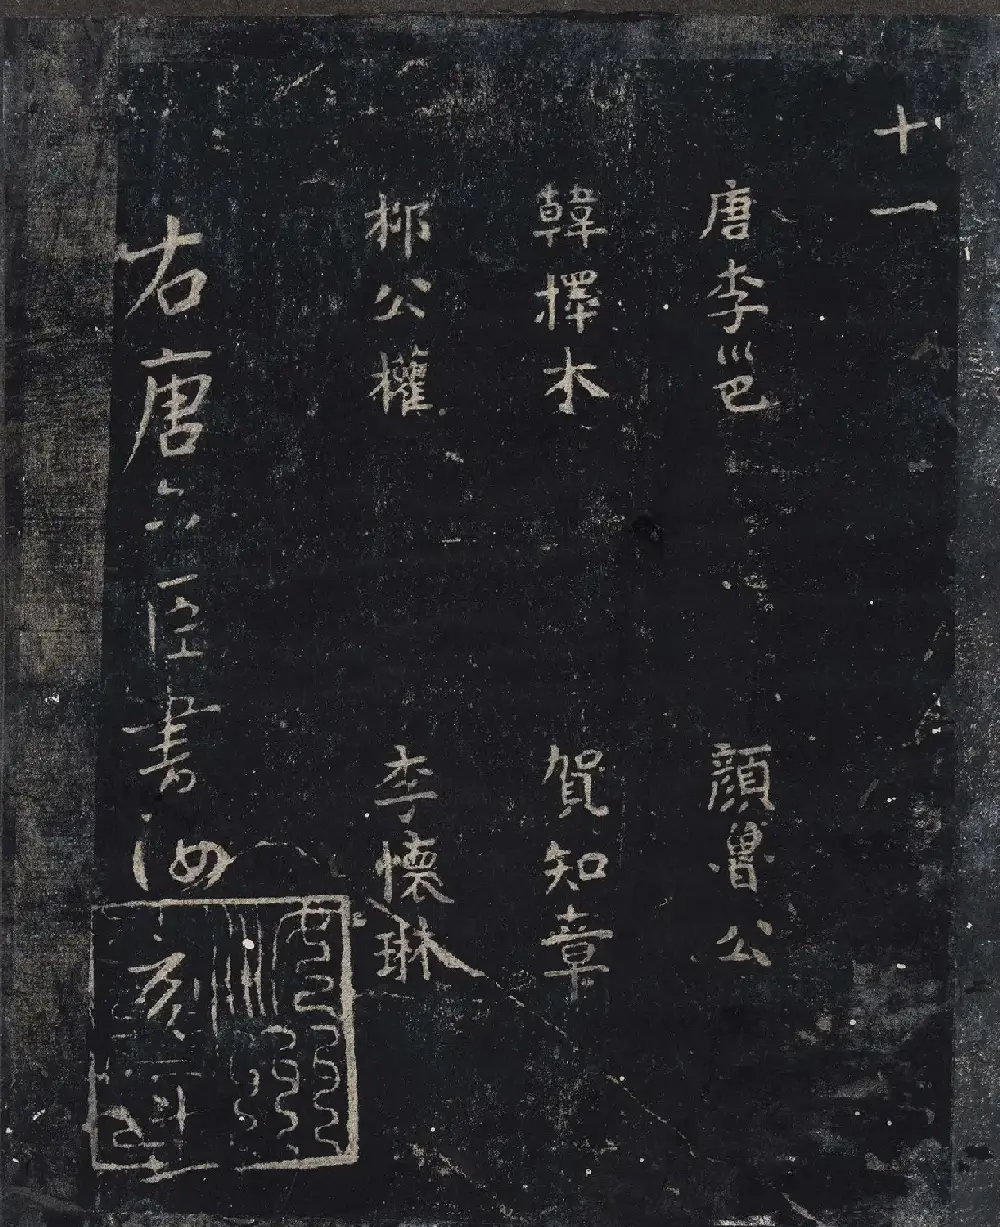 十一
唐李邕 顏魯公
韓擇木 賀知章
柳公權 李懷琳
右唐六臣書汝刻